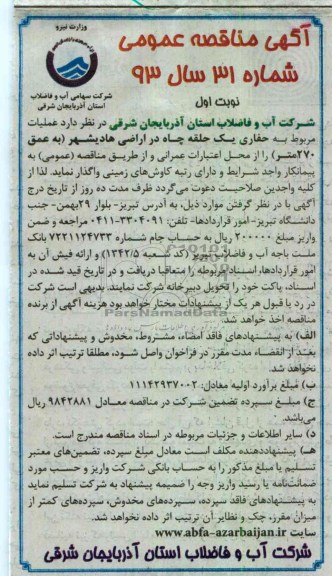 آگهی مناقصه عمومی
شماره ۳۱ سال ۹۳
نوبت اول
وزارت نیرو
شرکت سهامی آب و فاضلاب
استان آذربایجان شرقی
شرکت آب و فاضلاب استان آذربایجان شرقی در نظر دارد عملیات
مربوط به حفاری یک حلقه چاه در اراضی هادیشهر (به عمق
۲۷۰متر) را از محل اعتبارات عمرانی و از طریق مناقصه (عمومی) به
پیمانکار واجد شرایط و دارای رتبه کاوش‌های زمینی واگذار نماید. لذا از
کلیه واجدین صلاحیت دعوت می‌گردد ظرف مدت ده روز از تاریخ درج
آگهی با در نظر گرفتن موارد ذیل، به آدرس تبریز- بلوار ۲۹بهمن- جنب
دانشگاه تبریز- امور قراردادها- تلفن: ۳۳۰۴۰۹۱-۰۴۱۱ مراجعه و ضمن
واریز مبلغ ۲۰۰۰۰۰ ریال به حساب جام شماره ۷۲۲۱۱۲۴۷۳۳ بانک
ملت باجه آب و فاضلاب تبریز (کد شعبه ۱۳۴۲/۵) و ارائه فیش آن به
امور قراردادها، اسناد مربوطه را متعاقبا دریافت و در تاریخ قید شده در
اسناد، پاکت خود را تحویل دبیرخانه شرکت نمایند. بدیهی است شرکت
در رد یا قبول هر یک از پیشنهادات مختار خواهد بود هزینه آگهی از برنده
مناقصه اخذ خواهد شد.
الف) به پیشنهادهای فاقد امضاء، مشروط، مخدوش و پیشنهاداتی که
بعد از انقضاء مدت مقرر در فراخوان واصل شود، مطلقا ترتیب اثر داده
نخواهد شد.
ب) مبلغ برآورد اولیه معادل: ۱۱۱۴۲۹۳۷۰۰۲
ج) مبلغ سپرده تضمین شرکت در مناقصه معادل ۹۸۴۲۸۸۱ ریال
می‌باشد.
د) سایر اطلاعات و جزئیات مربوطه در اسناد مناقصه مندرج است.
هـ) پیشنهاددهنده مکلف است معادل مبلغ سپرده، تضمین‌های معتبر
تسلیم یا مبلغ مذکور را به حساب بانکی شرکت واریز و حسب مورد
ضمانت‌نامه یا رسید واریز وجه را ضمیمه پیشنهاد به شرکت تسلیم نماید
به پیشنهادهای فاقد سپرده، سپرده‌های مخدوش، سپرده‌های کمتر از
میزان مقرر، چک و نظایر آن ترتیب اثر داده نخواهد شد.
سایت www.abfa-azarbaijan.ir
شرکت آب و فاضلاب استان آذربایجان شرقی